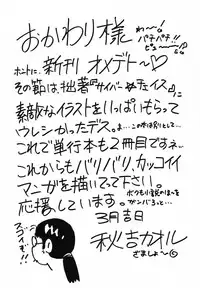 おかわり様
わ〜!
パチパチ!!
ホントに、新刊オメデト〜♡
その節は、拙著『サイバー☆チェイス』に
素敵なイラストをいっぱいもらって
ウレシかったデス。
これで単行本も2冊目ですネ。
これからもバリバリ、カッコイイ
マンガを描いてって下さい。
応援しています。
ガンバろっと…
3月吉日
秋吉カオル
スゴイぞ!!